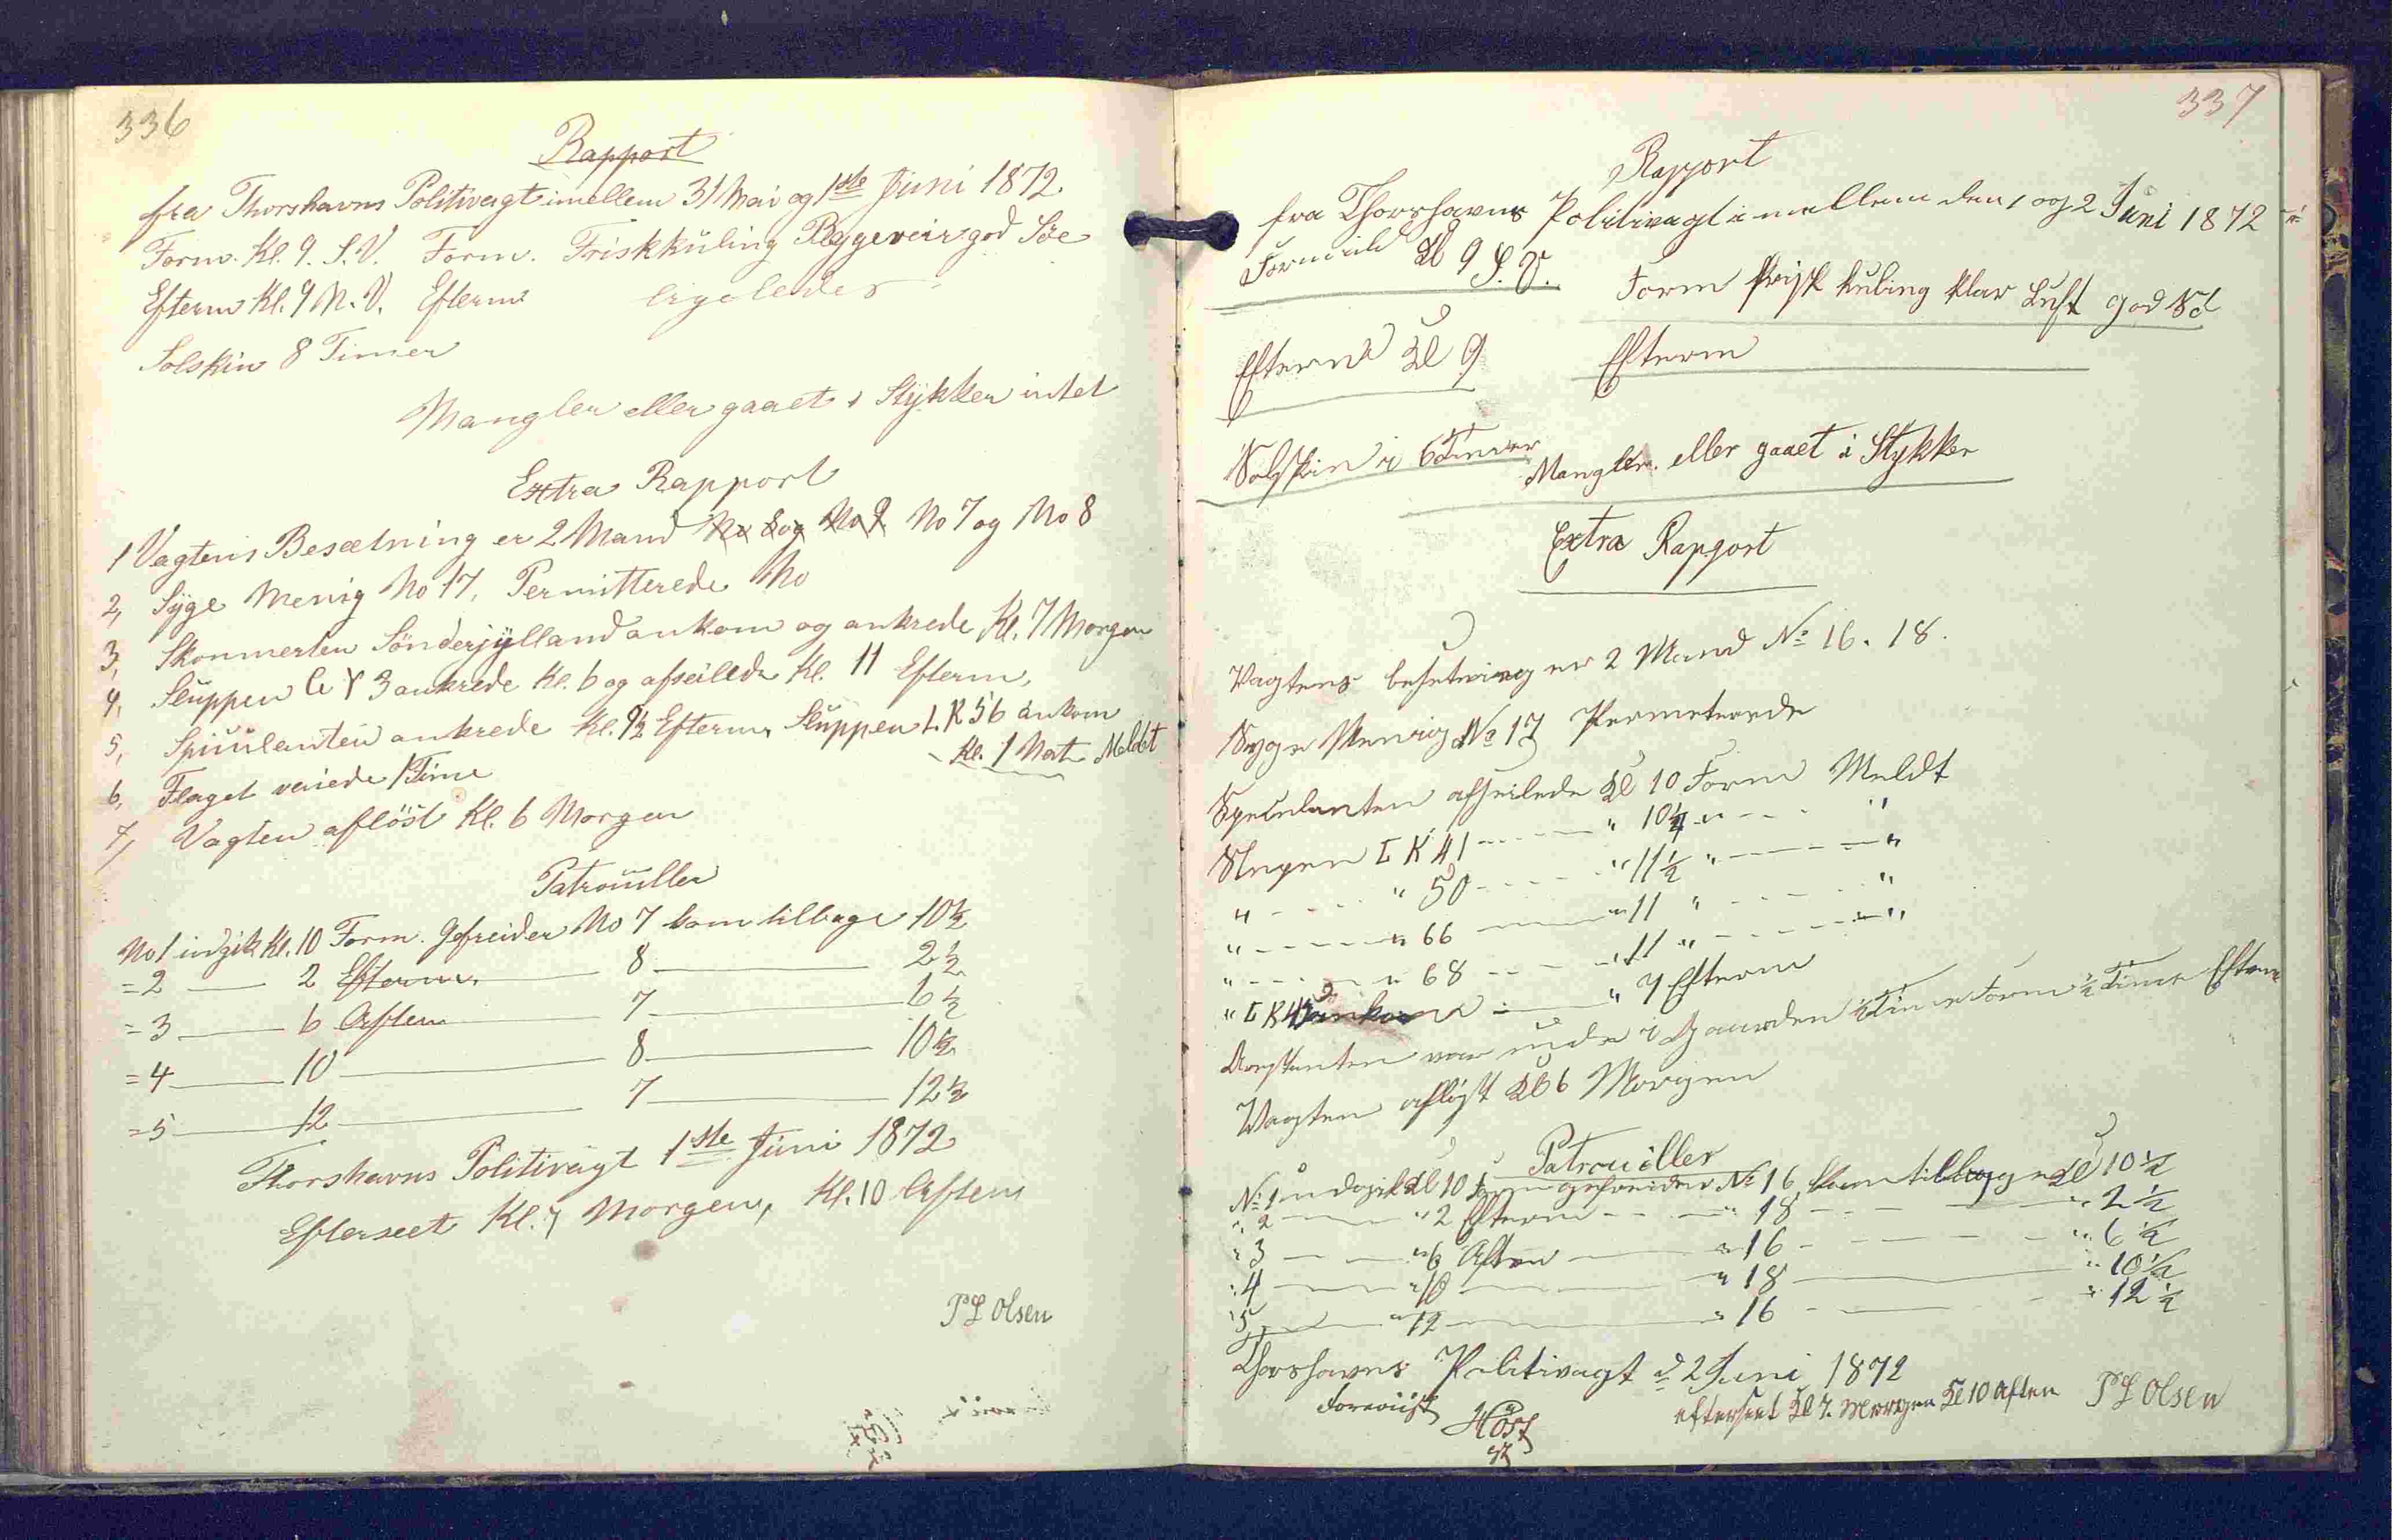 336
Rapport
fra Thorshavns Politivagt imellem 31 Mai og 1ste Juni 1872.
Form. Kl. 9. S.V. Form. Friskkuling Byggeveir god Söe
Efterm Kl. 9 N.V. Efterm ligeledes
Solskin 8 Timer
Mangler eller gaaet i Stykker intet
Extra Rapport
1 Vagtens Besætning er 2 Mand No 7 og No 8
2, Syge Menig No 17, Permitterede No
3, Skonnerten Sönderjylland ankom og ankrede Kl. 7 Morgen
4, Sluppen 3 ankrede Kl. 6 og afseilede Kl. 11 Efterm,
5, ankrede Kl. 9½ Efterm, Sluppen L.K 56 ankom
Kl. 1 Nat Meldt
6, Flaget veiede 1 Time
7, Vagten aflöst Kl. 6 Morgen
Patrouller
No 1 indgik Kl. 10 Form. Gefreider No 7 kom tilbage 10½
=2 — 2 Efterm. — 8 — 2½
=3 — 6 Aften — 7 — 6½
=4 — 10 — 8 — 10½
=5 — 12 — 7 — 12½
Thorshavns Politivagt 1ste Juni 1872
Efterseet Kl. 7 Morgen, Kl. 10 Aften
P L Olsen
337
Rapport
fra Thorshavns Politivagt imellem den 1 og 2 Juni 1872
Kl 9 S.V. Form frisk kuling klar Luft god Sö
Efterm Kl 9 Efterm
Solskin i 6 Timer
Mangler eller gaaet i Stykker
Extra Rapport
Vagtens besetning er 2 Mand No 16. 18.
Syge Menig No 17 Permeterede
Speculanten afseilede Kl 10 Form Meldt
Slupen L K 41 - - - " 10¼ " - - - "
" - - - " 50 - - - " 11½ " - - - "
" - - - " 66 - - - " 11 " - - - "
" - - - " 68 - - - " 11 " - - - "
" L K — " 7 Efterm
Arestanten var ude i Gaarden ½ Time Form ½ Time Efterm
Vagten afløst Kl 6 Morgen
Patrouiller
No 1 indgik Kl 10 Form gefreider No 16 kom tilbage Kl 10½
" 2 — " 2 Efterm — " 18 — " 2½
" 3 — " 6 Aften — " 16 — " 6½
" 4 — " 10 — " 18 — " 10½
" 5 — " 12 — " 16 — " 12½
Thorshavns Politivagt d 2 Juni 1872
Foreviist
Höst
efterseet Kl 7. Morgen Kl 10 Aften P L Olsen